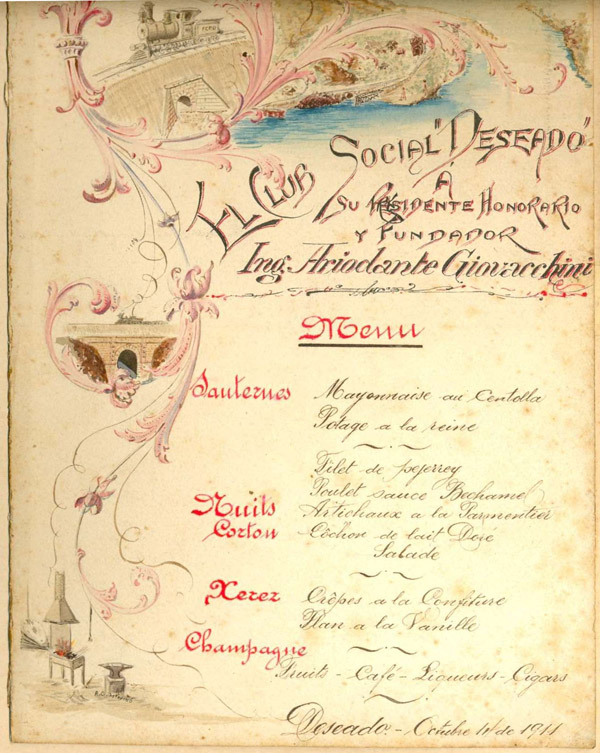 El Club Social "Deseado"
A
Su Presidente Honorario
y Fundador
Ing. Ariodante Giovacchini
Menu
Sauternes
Mayonnaise au Centolla
Potage a la reine
Filet de pejerrey
Poulet sauce Bechamel
Nuits
Artichaux a la Parmentier
Corton
Côchon de lait Doré
Salade
Xerez
Crêpes a la Confiture
Flan a la Vanille
Champagne
Fruits - Café - Liqueurs - Cigars
Deseado - Octubre de 1911